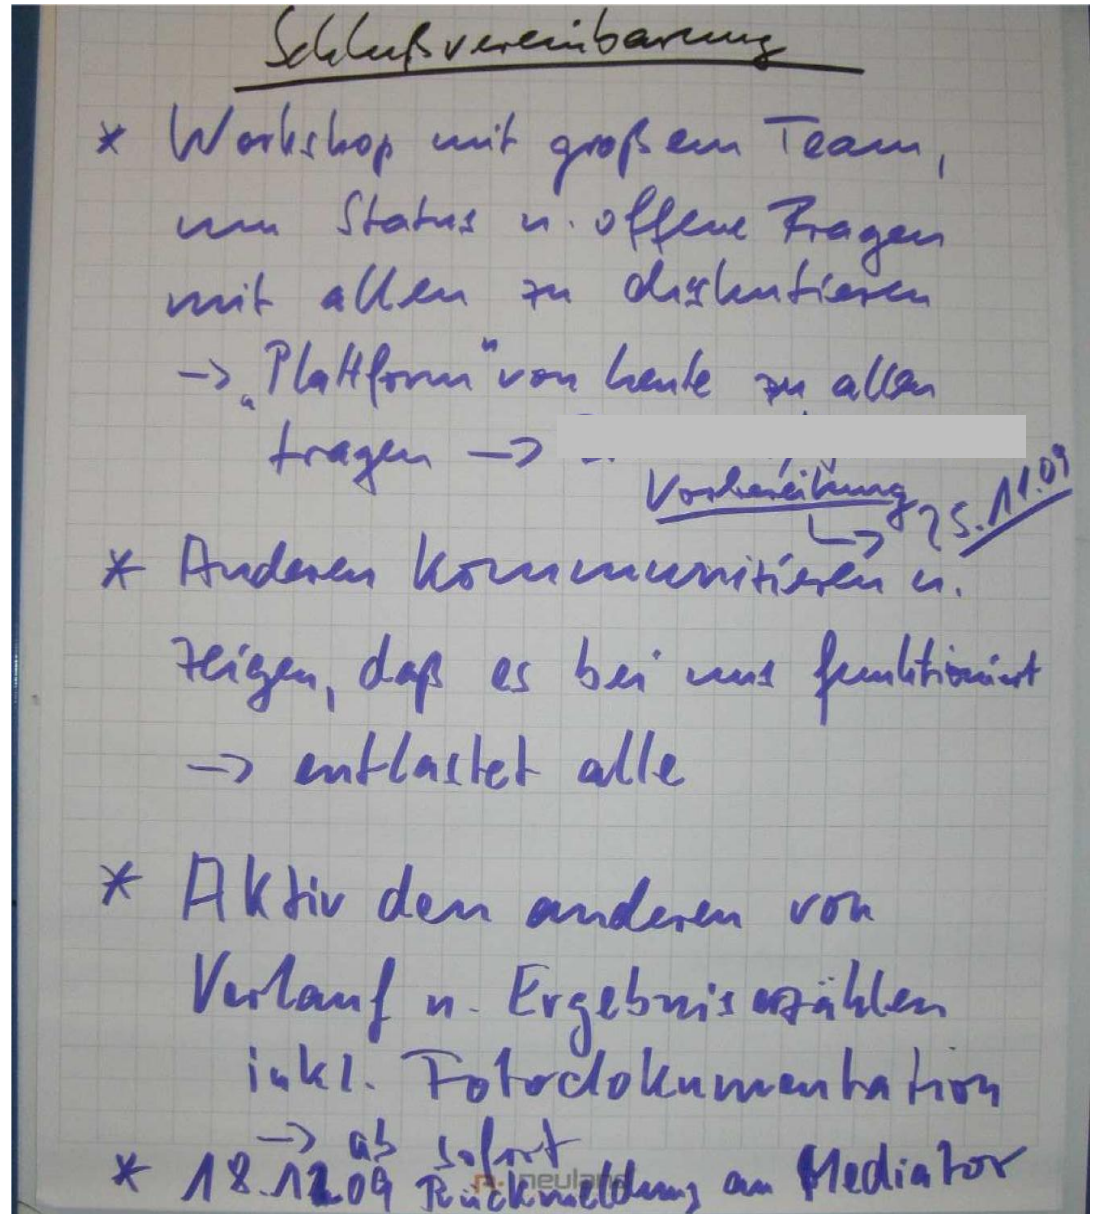 Schlußvereinbarung
* Workshop mit großem Team,
um Status u. offene Fragen
mit allen zu diskutieren
-> „Plattform" von heute zu allen
tragen ->
Vorbereitung
↳ 25.11.09
* Anderen kommunizieren u.
zeigen, daß es bei uns funktioniert
-> entlastet alle
* Aktiv den anderen von
Verlauf u. Ergebnis erzählen
inkl. Fotodokumentation
-> ab sofort
* 18.12.09 Rückmeldung an Mediator
neuland